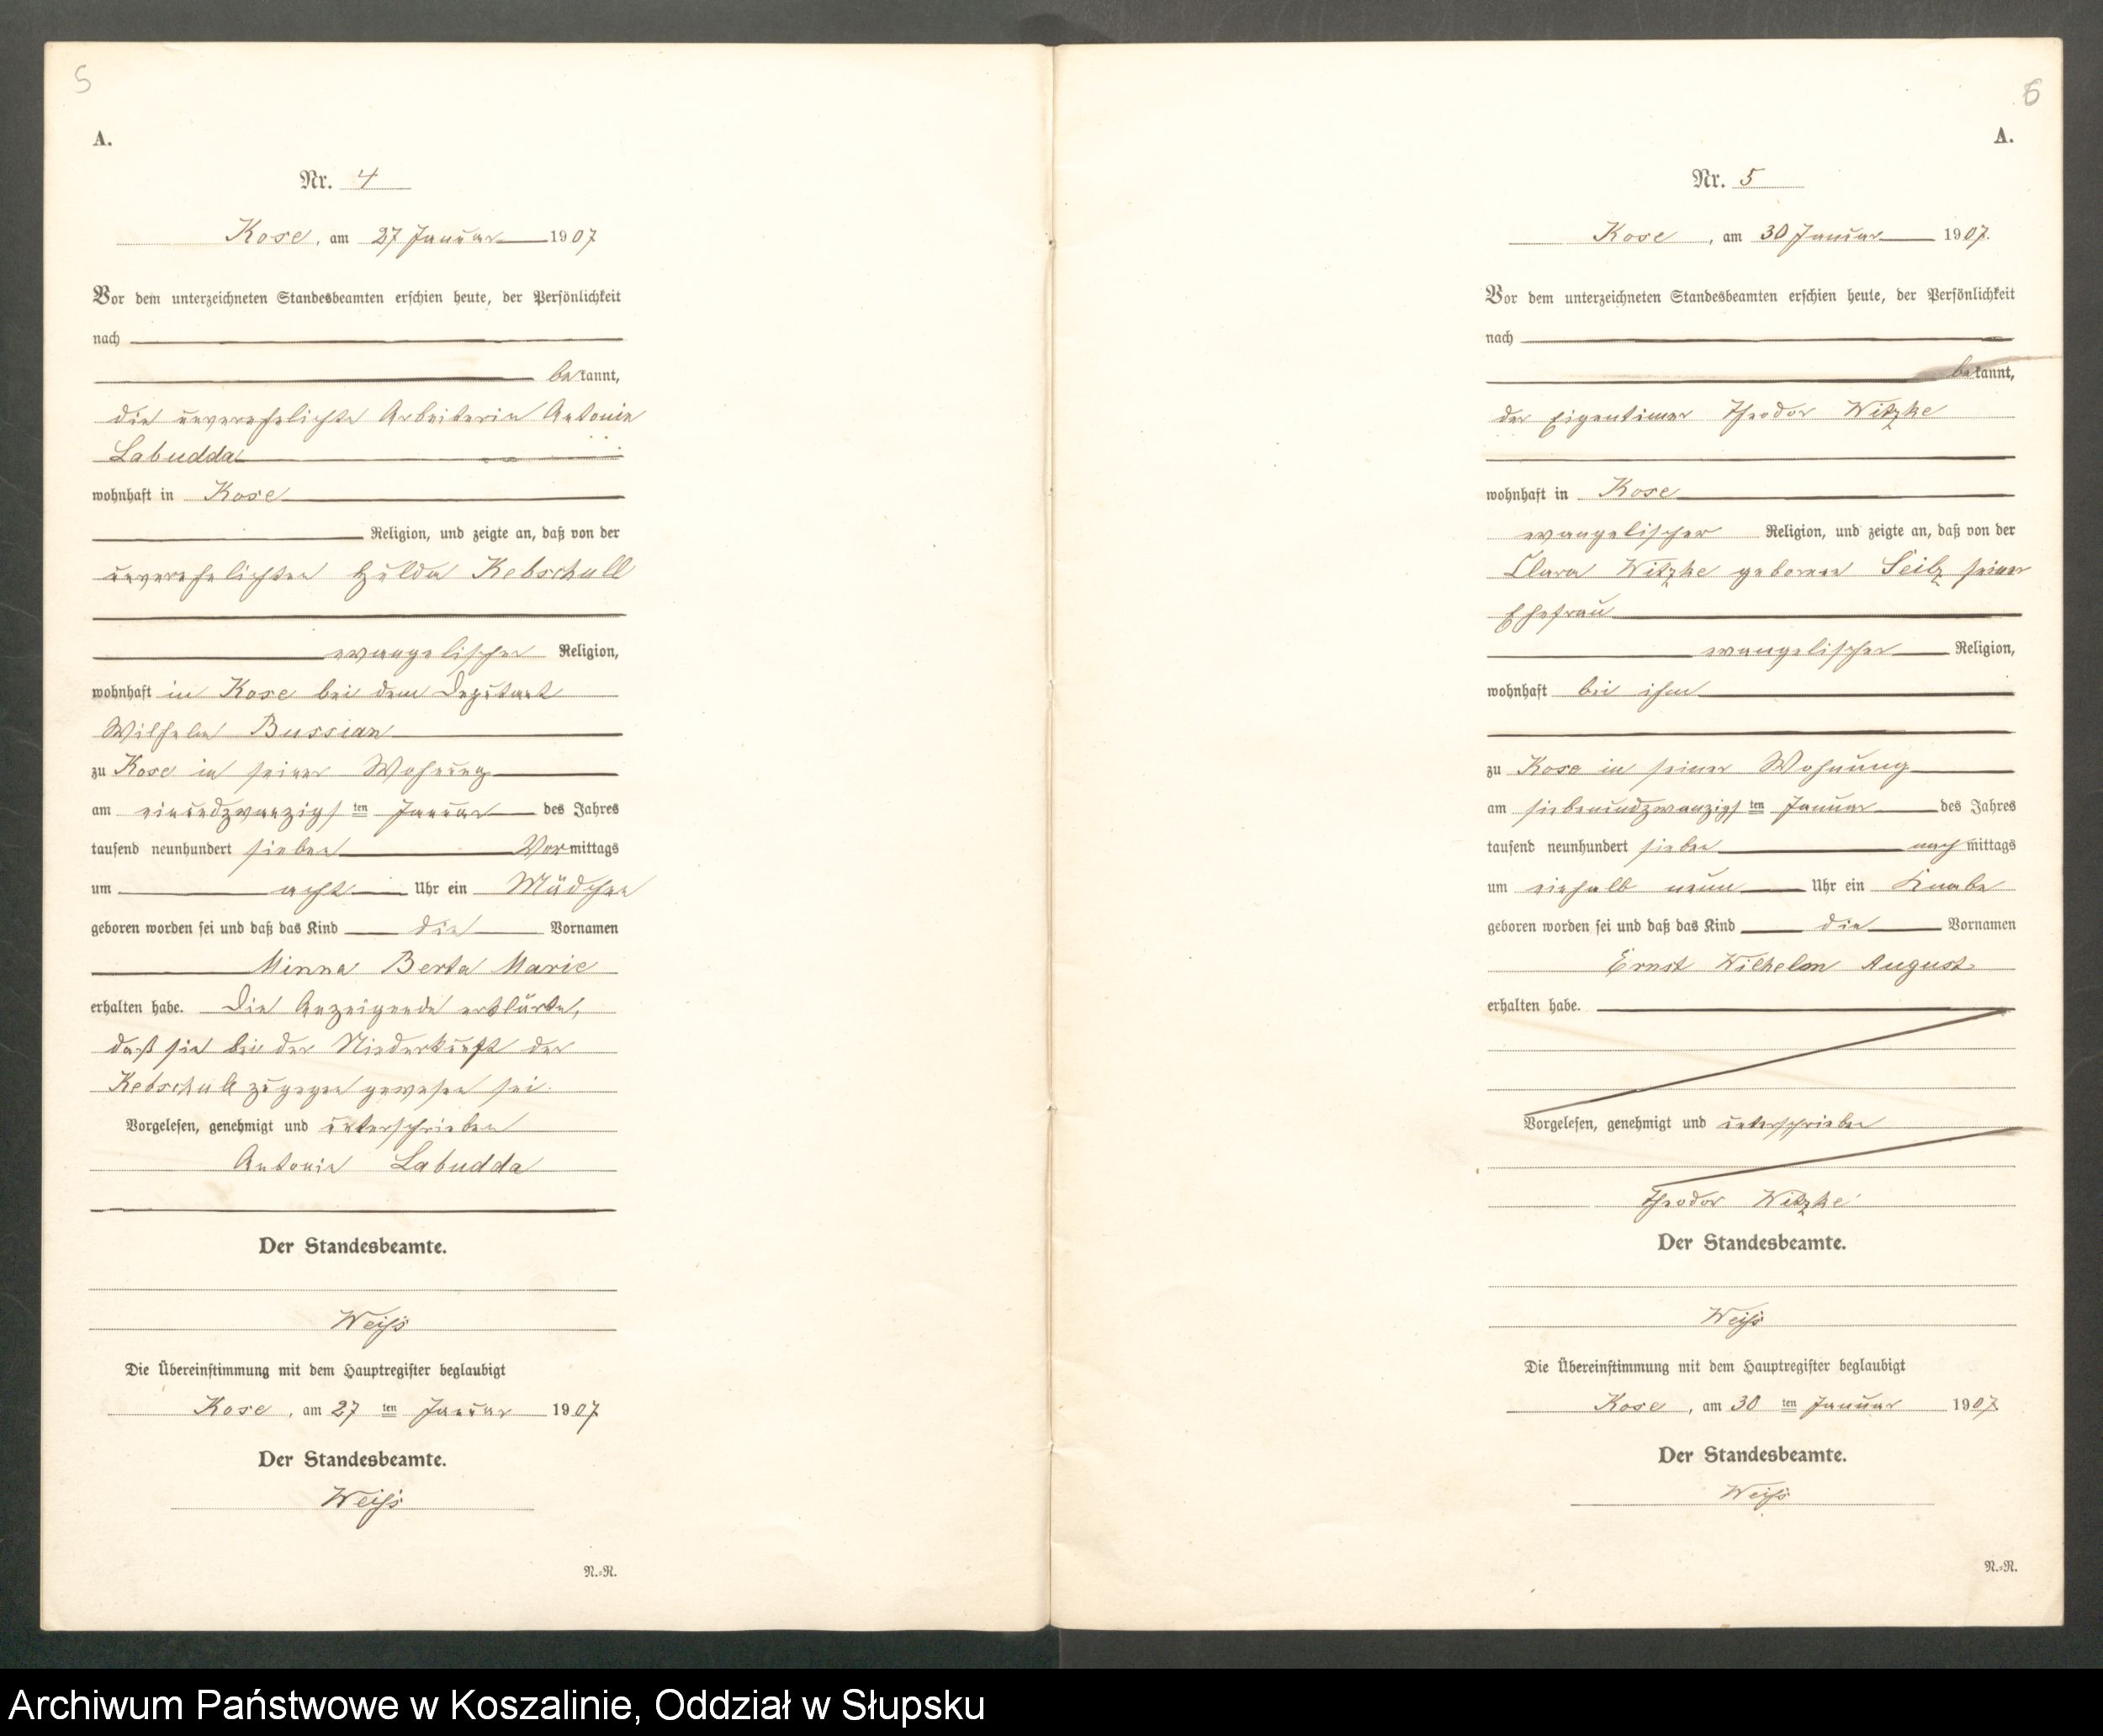 5
A.
Nr. 4
Kose, am 27 Januar 1907
Vor dem unterzeichneten Standesbeamten erschien heute, der Persönlichkeit
nach
bekannt,
die unverehelichte Arbeiterin Antonie
Labudda
wohnhaft in Kose
Religion, und zeigte an, daß von der
unverehelichten Hulda Kebschull
evangelischer Religion,
wohnhaft in Kose bei dem Deputant
Wilhelm Bussian
zu Kose in seiner Wohnung
am einundzwanzigsten Januar des Jahres
tausend neunhundert sieben Vormittags
um acht Uhr ein Mädchen
geboren worden sei und daß das Kind die Vornamen
Minna Berta Marie
erhalten habe. Die Anzeigende erklärte,
daß sie bei der Niederkunft der
Kebschull zugegen gewesen sei.
Vorgelesen, genehmigt und unterschrieben
Antonie Labudda
Der Standesbeamte.
Weiß
Die Übereinstimmung mit dem Hauptregister beglaubigt
Kose, am 27 ten Januar 1907
Der Standesbeamte.
Weiß
N.-N.
6
A.
Nr. 5
Kose, am 30 Januar 1907.
Vor dem unterzeichneten Standesbeamten erschien heute, der Persönlichkeit
nach
bekannt,
der Eigentümer Theodor Witzke
wohnhaft in Kose
evangelischer Religion, und zeigte an, daß von der
Clara Witzke geborene Seilz seiner
Ehefrau
evangelischer Religion,
wohnhaft bei ihm
zu Kose in seiner Wohnung
am siebenundzwanzigsten Januar des Jahres
tausend neunhundert sieben nachmittags
um einhalb neun Uhr ein Knabe
geboren worden sei und daß das Kind die Vornamen
Ernst Wilhelm August
erhalten habe.
Vorgelesen, genehmigt und unterschrieben
Theodor Witzke
Der Standesbeamte.
Weiß
Die Übereinstimmung mit dem Hauptregister beglaubigt
Kose, am 30 ten Januar 1907
Der Standesbeamte.
Weiß
N.-N.
Archiwum Państwowe w Koszalinie, Oddział w Słupsku